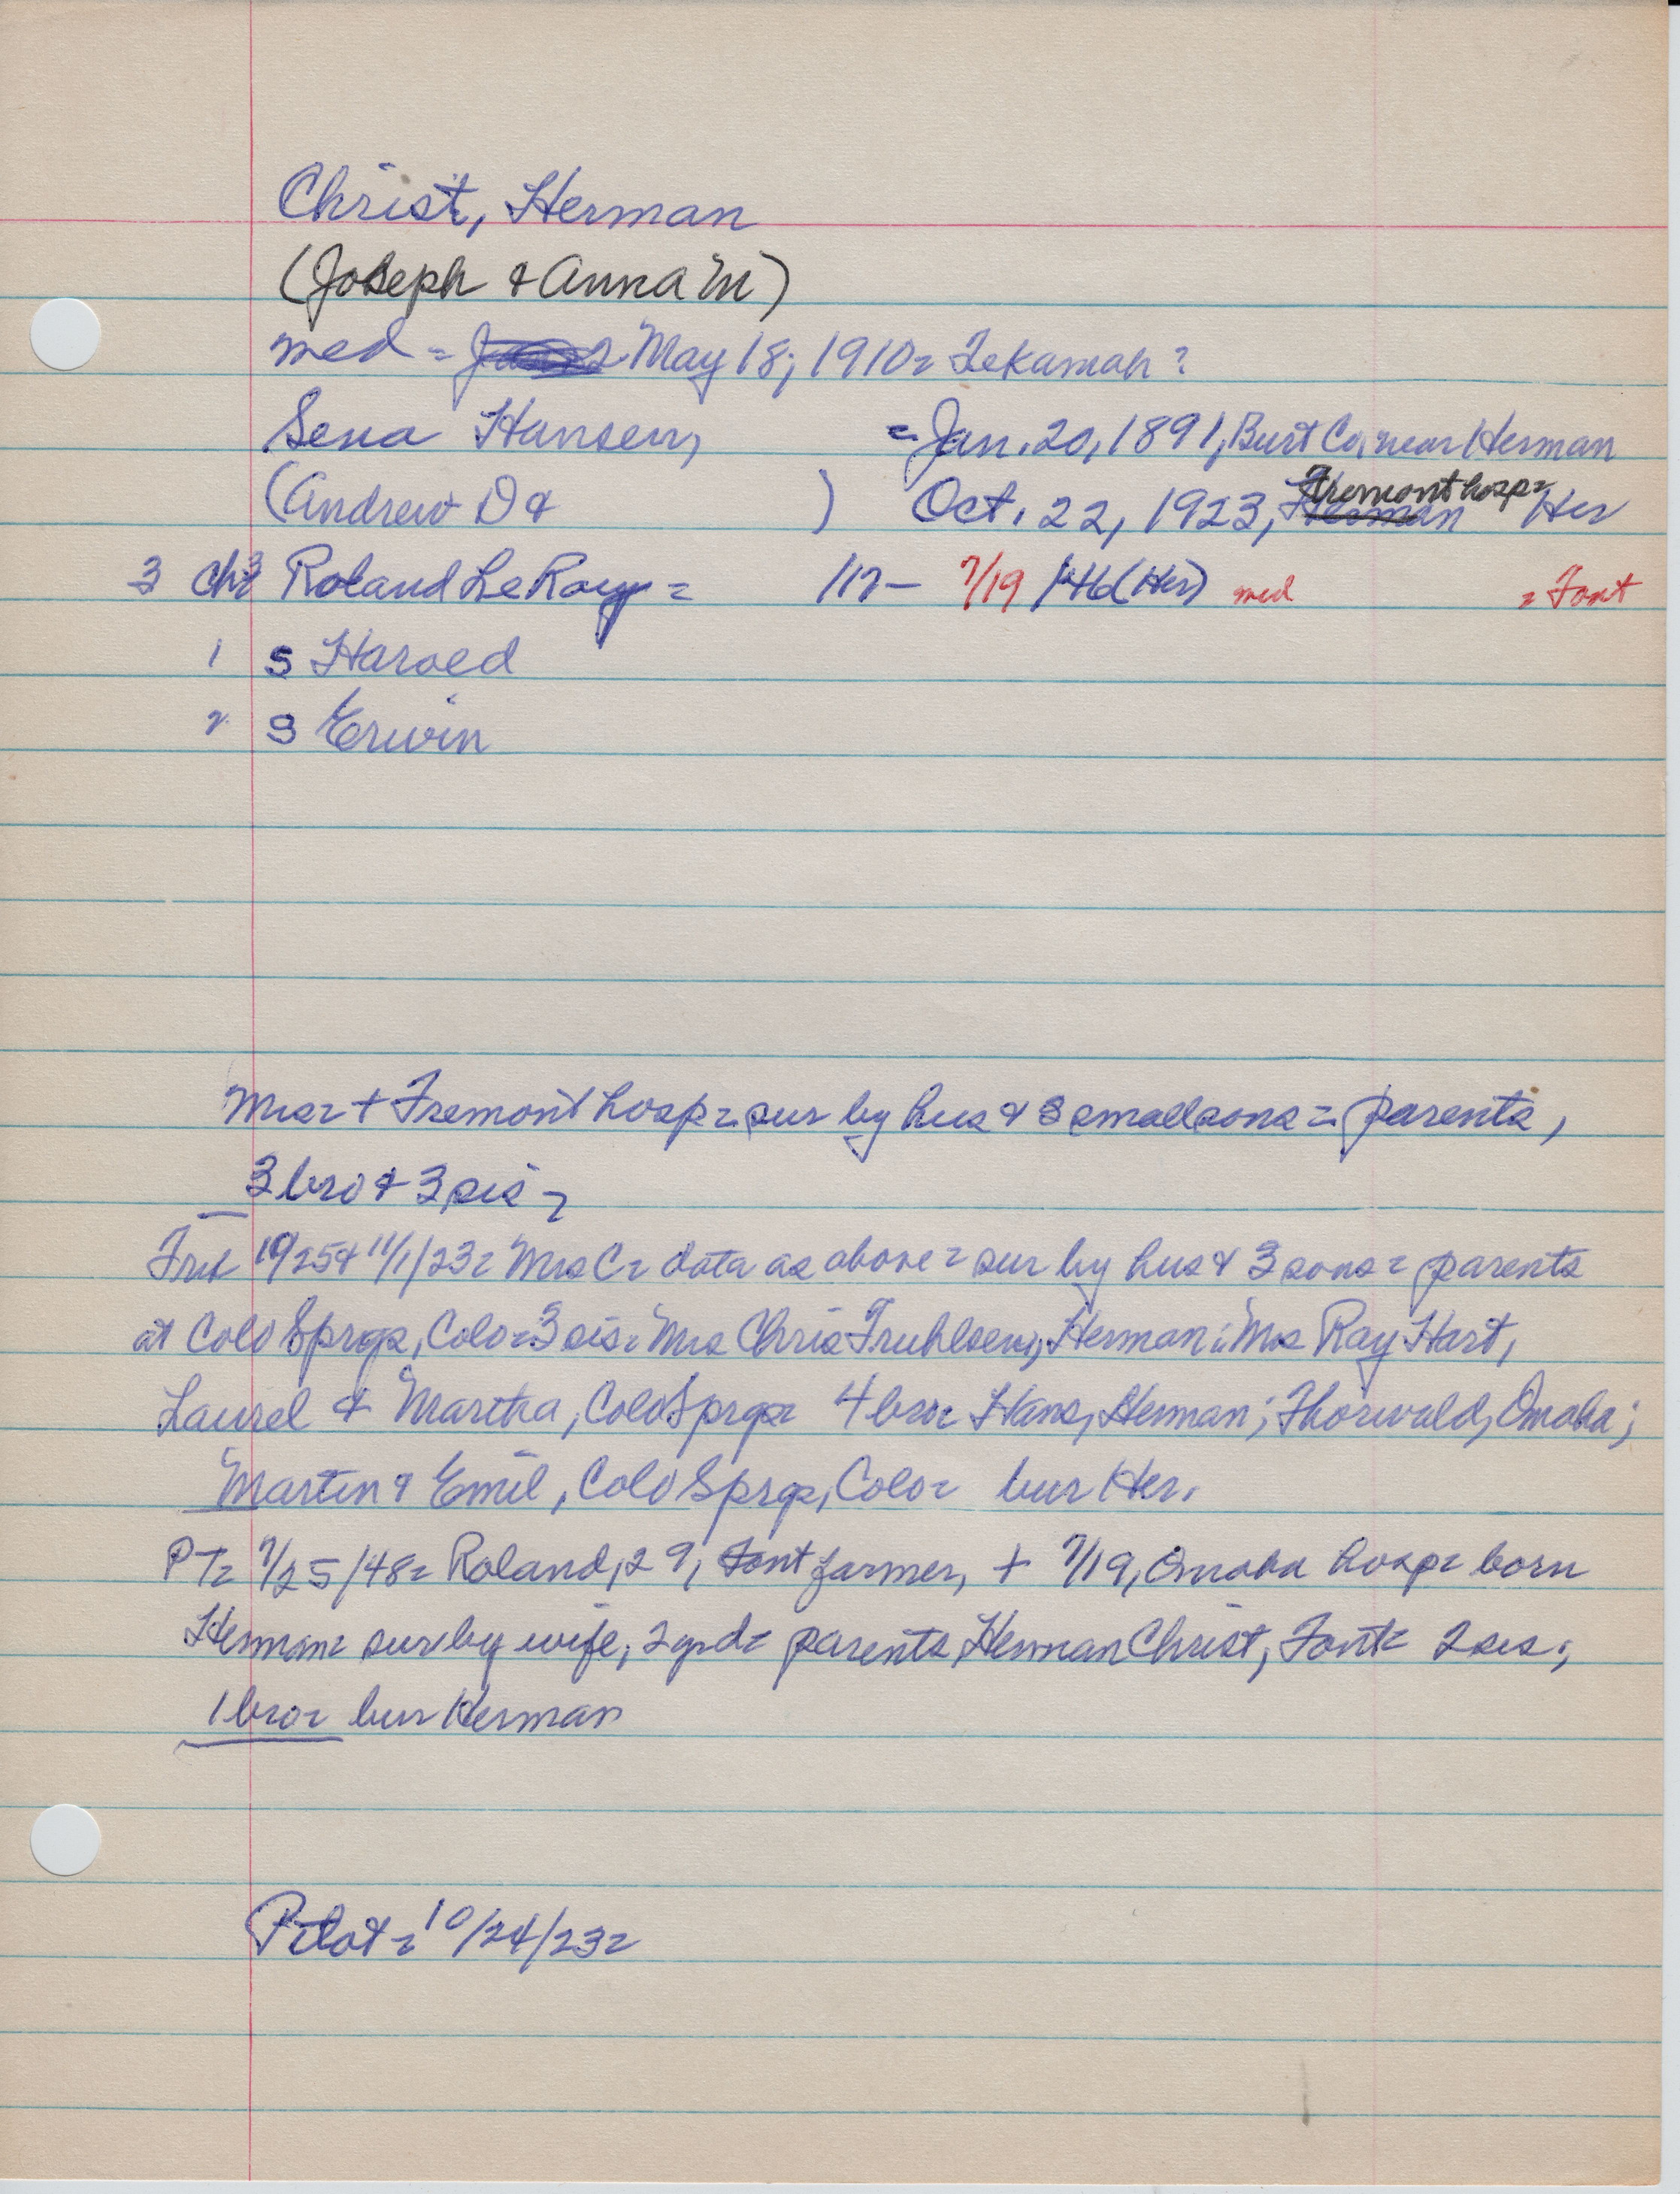 Christ, Herman
(Joseph & Anna M)
med = May 18, 1910= Tekamah?
Sena Hansen, = Jan. 20, 1891, Burt Co, near Herman
(Andrew D & ) Oct. 22, 1923, Herman Fremont hosp= Her
3 ch= 3 Roland LeRoy = /17- 7/19 /46 (Her) med = Font
1 s Harold
2 s Erwin
Mrs= + Fremont hosp= sur by hus & 3 small sons= parents,
3 bro & 3 sis=
10/25 & 11/1/23= Mrs C= data as above= sur by hus & 3 sons= parents
at Colo Sprgs, Colo= 3 sis= Mrs Chris Truhlsen, Herman; Mrs Ray Hart,
Laurel & Martha, Colo Sprgs= 4 bro= Hans, Herman; Thorwald, Omaha;
Martin & Emil, Colo Sprgs, Colo= bur Her.
PT= 7/25/48= Roland, 29, Font farmer, + 7/19, Omaha hosp= born
Herman= sur by wife, 2 yr d= parents Herman Christ, Font= 2 sis;
1 bro= bur Herman
Pilot= 10/24/23=